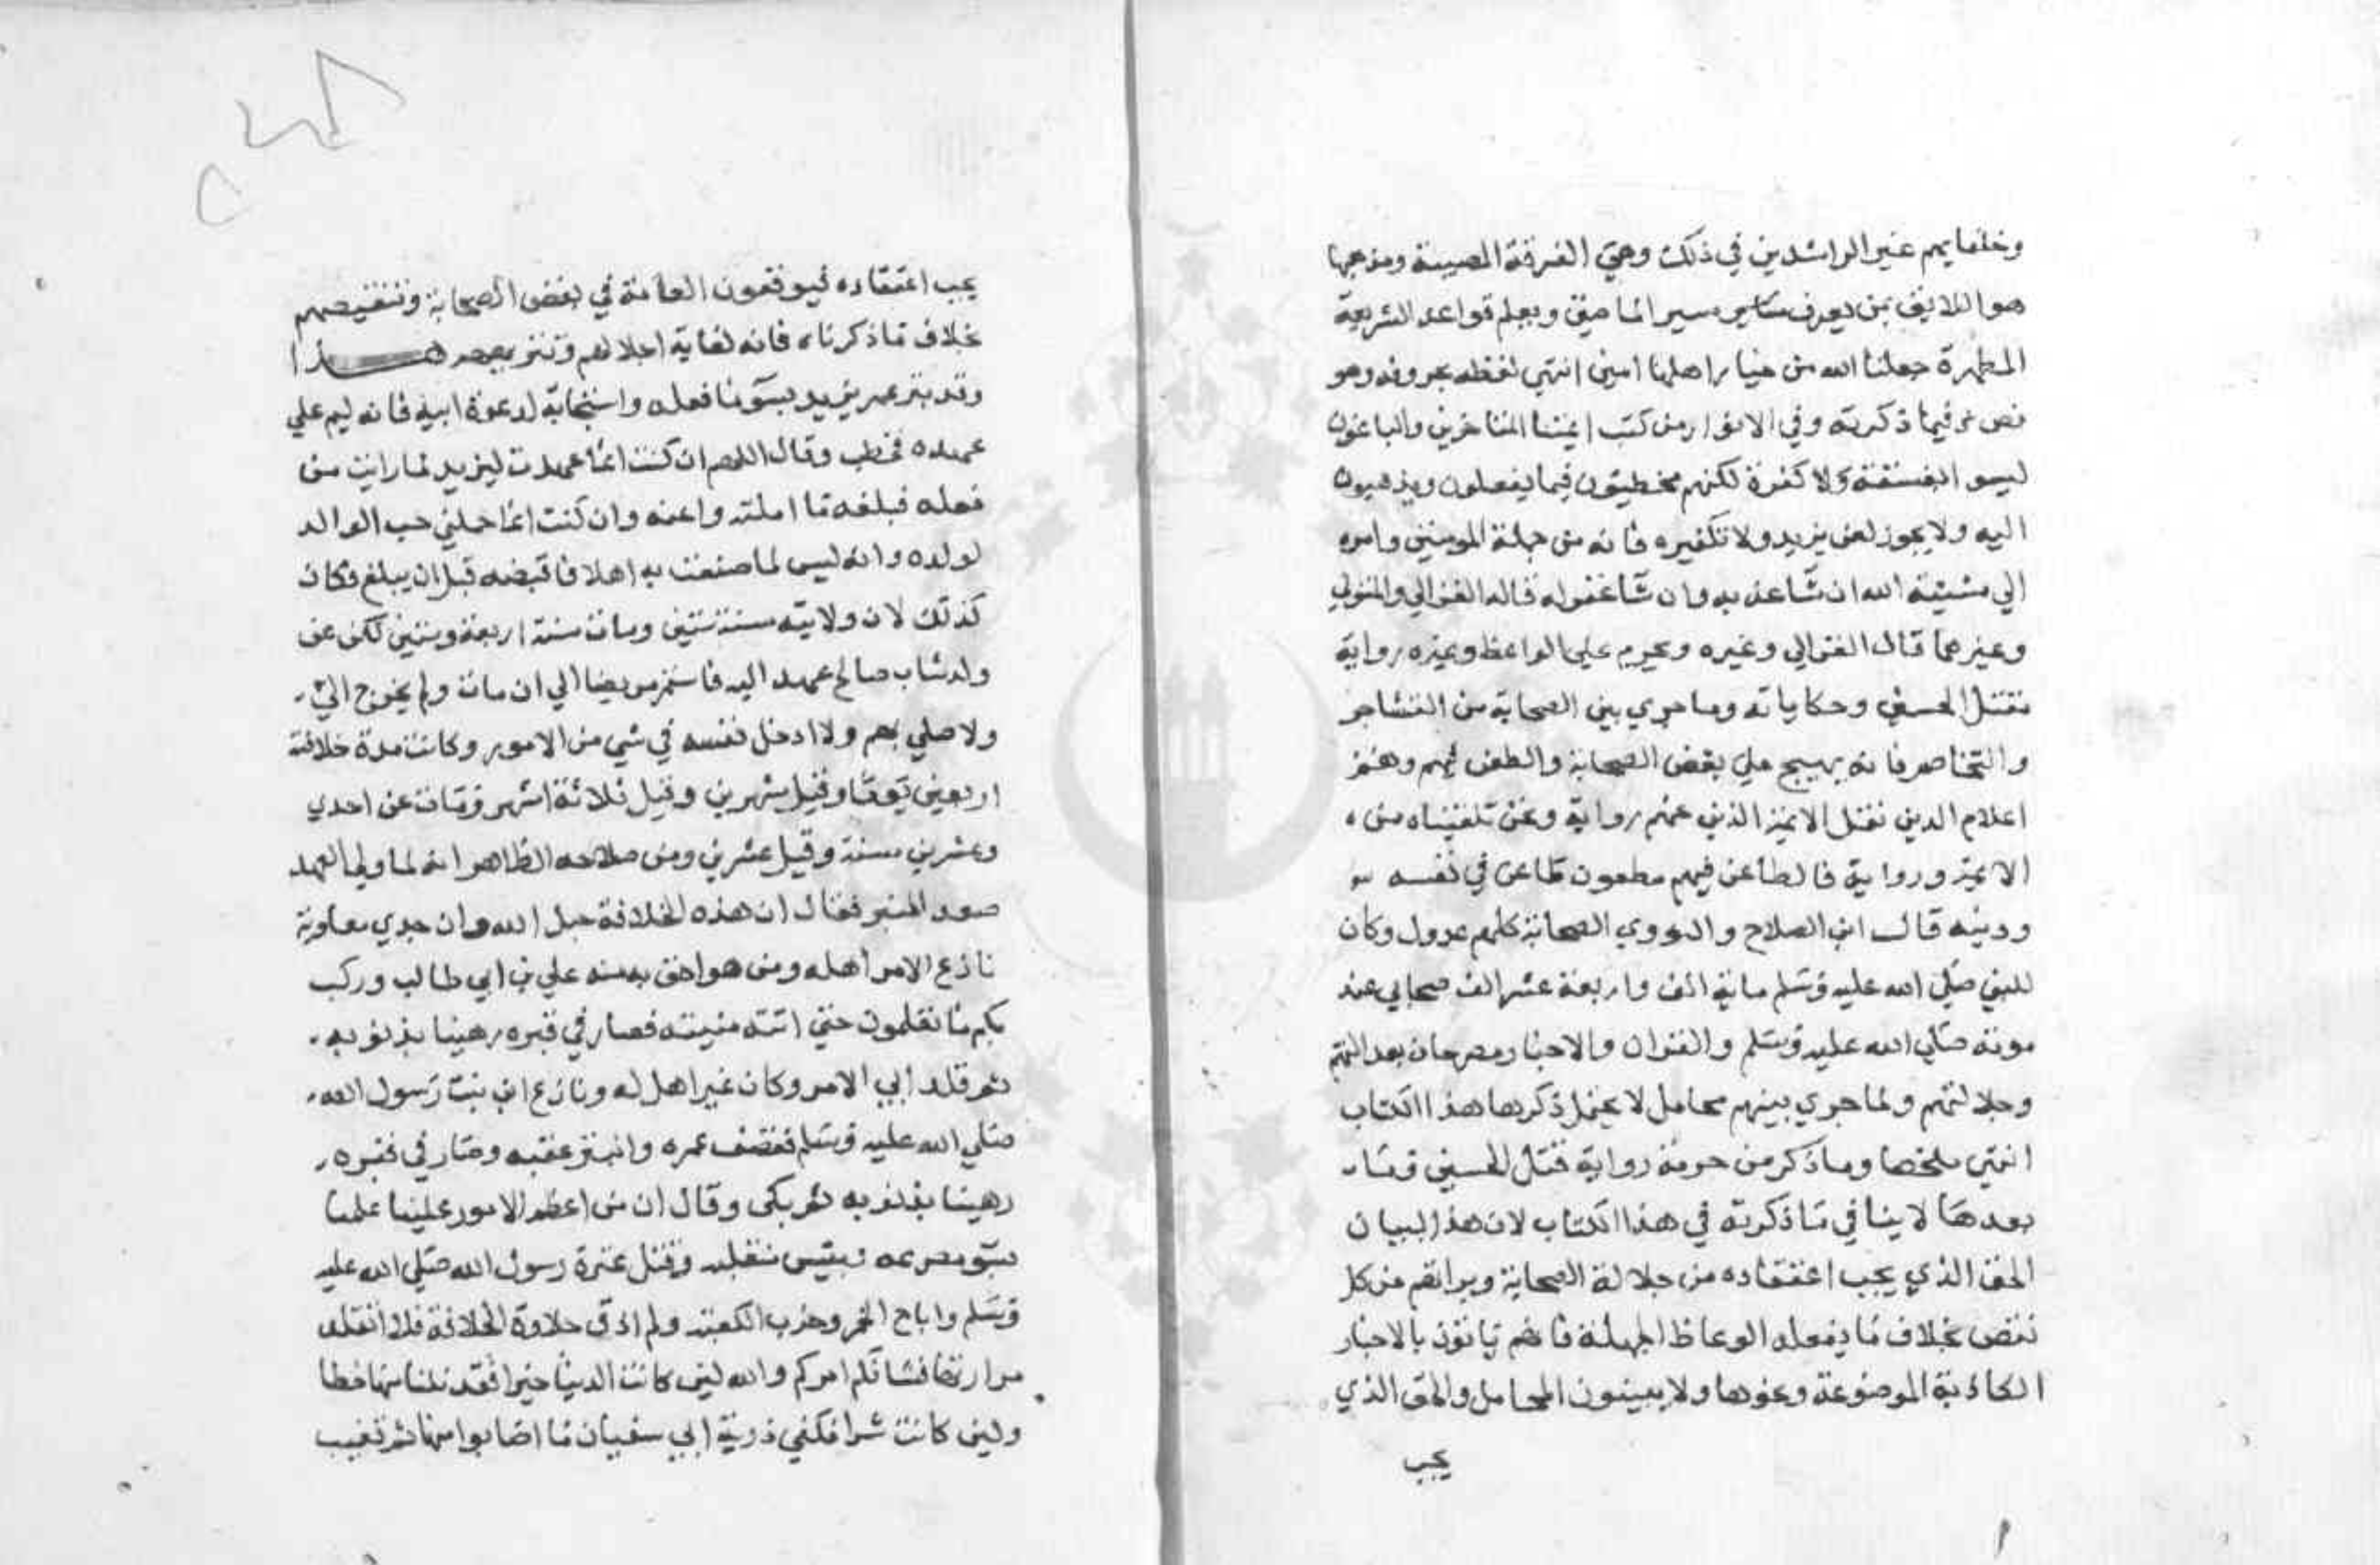 وخلفايهم غير الراشدين في ذلك وهي الفرقة المصيبة ومذهبها
هو اللايق بمن يعرف سير الماضين ويعلم قواعد الشريعة
المطهرة جعلنا الله من خيار اهلها امين انتهي لفظه بحروفه وهو
نص فيما ذكرته وفي الانوار من كتب ايمتنا المتاخرين والباغون
ليسوا بفسقة ولا كفرة لكنهم مخطيئون فيما يفعلون ويذهبون
اليه ولا يجوز لعن يزيد ولا تكفيره فانه من جملة المومنين وامره
الي مشيئة الله ان شا عذبه وان شا غفر له قاله الغزالي والمتولي
وغيرهما قال الغزالي وغيره ويحرم علي الواعظ وغيره رواية
مقتل الحسين وحكاياته وما جري بين الصحابة من التشاجر
والتخاصم فانه يهيج علي بغض الصحابة والطعن فيهم وهم
اعلام الدين نقل الايمة الذين عنهم رواية ونحن تلقيناه من
الايمة رواية فالطاعن فيهم مطعون طاعن في نفسه
ودينه قال ابن الصلاح والنووي الصحابة كلهم عدول وكان
للنبي صلي الله عليه وسلم ماية الف واربعة عشر الف صحابي عند
موته صلي الله عليه وسلم والقران والاخبار مصرحان بعدالتهم
وجلالتهم ولما جري بينهم محامل لا يحتمل ذكرها هذا الكتاب
انتهي ملخصا وما ذكر من حرمة رواية قتل الحسين وما
بعدها لا ينافي ما ذكرته في هذا الكتاب لان هذا البيان
الحق الذي يجب اعتقاده من جلالة الصحابة وبراتهم من كل
نقص بخلاف ما يفعله الوعاظ الجهلة فانهم ياتون بالاخبار
الكاذبة الموضوعة ونحوها ولا يبينون المحامل والحق الذي
يجب
يجب اعتقاده فيوقعون العامة في بغض الصحابة وتنقيصهم
بخلاف ما ذكرناه فانه لغاية اجلالهم وتنزيههم هذا
وقد بتر عمر يزيد بسو ما فعله واستجابة لدعوة ابيه فانه ليم علي
عهده فخطب وقال اللهم ان كنت انما عهدت ليزيد لما رايت من
فعله فبلغه ما املته واعنه وان كنت انما حملني حب الوالد
لولده وانه ليس لما صنعت به اهلا فاقبضه قبل ان يبلغ فكان
كذلك لان ولايته سنة ستين ومات سنة اربعة وستين لكن عن
ولد شاب صالح عهد اليه فاستمر مريضا الي ان مات ولم يخرج الي
ولا صلي بهم ولا ادخل نفسه في شي من الامور وكانت مدة خلافته
اربعين يوما وقيل شهرين وقيل ثلاثة اشهر ومات عن احدي
وعشرين سنة وقيل عشرين ومن صلاحه الظاهر انه لما ولي العهد
صعد المنبر فقال ان هذه الخلافة حبل الله وان جدي معاوية
نازع الامر اهله ومن هو احق به منه علي بن ابي طالب وركب
بكم ما تعلمون حتي اتته منيته فصار في قبره رهينا بذنوبه
ثم قلد ابي الامر وكان غير اهل له ونازع ابن بنت رسول الله
صلي الله عليه وسلم فقصف عمره وانبتر عقبه وصار في قبره
رهينا بذنوبه ثم بكي وقال ان من اعظم الامور علينا علمنا
بسو مصرعه وبئيس منقلبه وقتل عترة رسول الله صلي الله عليه
وسلم واباح الخمر وخرب الكعبة ولم اذق حلاوة الخلافة فلا اتقلد
مرارتها فشانكم امركم والله لين كانت الدنيا خيرا فقد نلنا منها حظا
ولين كانت شرا فكفي ذرية ابي سفيان ما اصابوا منها ثم تغيب